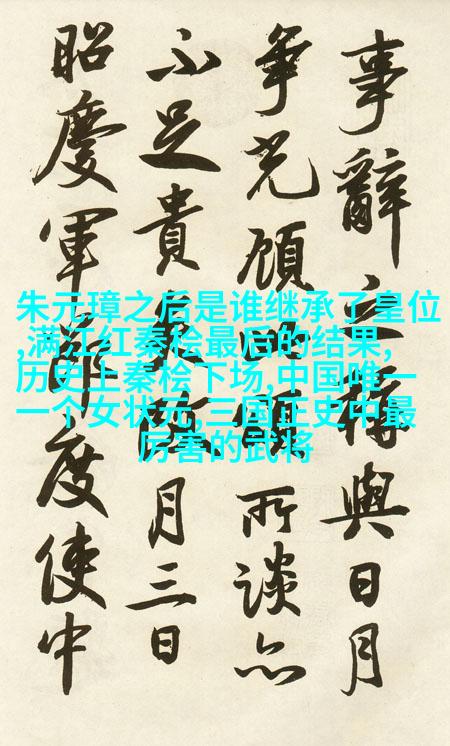 朱元璋之后是谁继承了皇位
,满江红秦桧最后的结果,
历史上秦桧下场,中国唯一
一个女状元,三国正史中最
厉害的武将
事辭之與日月
爭光顧所談
不足貴月三日
昭慶軍節度使中